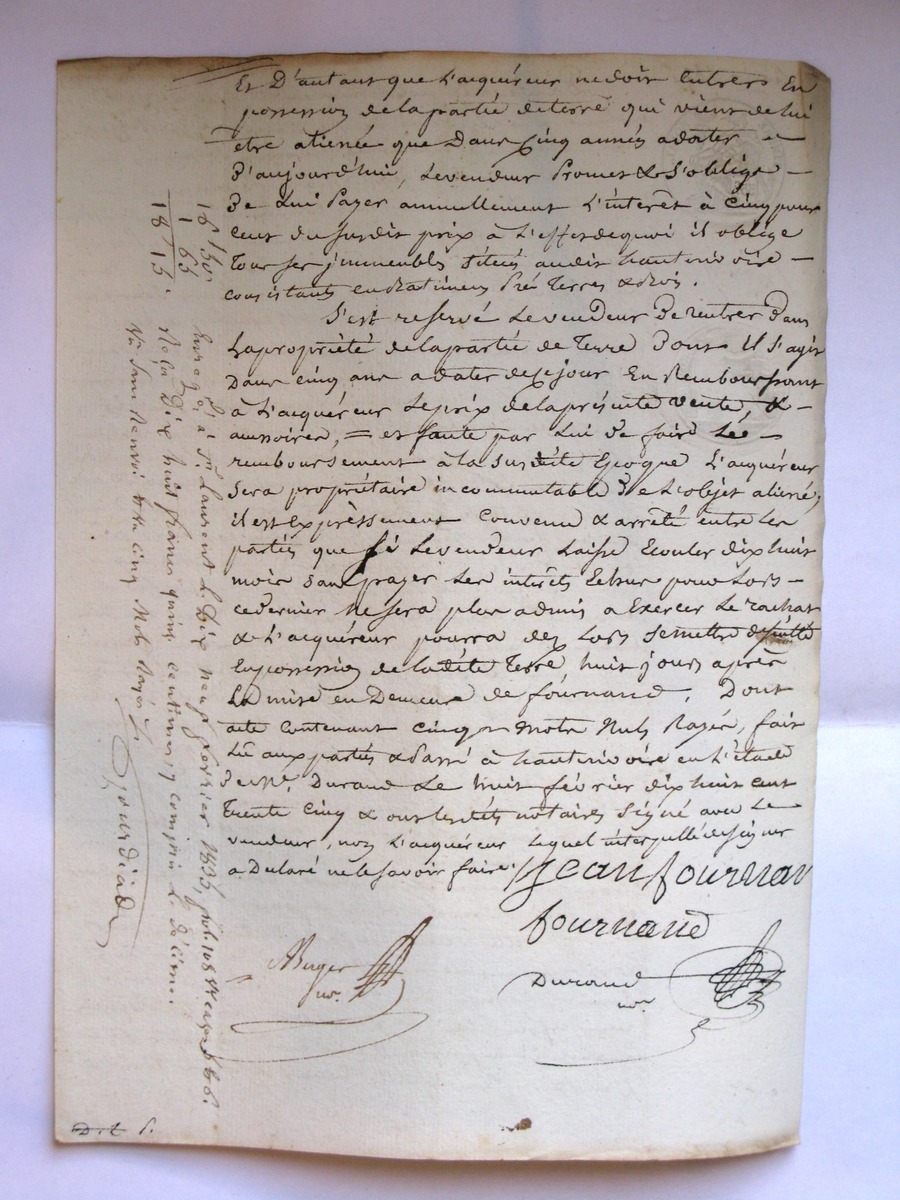 Et D'autant que L'acquéreur ne doit Entrer En
possession de la partie de terre qui vient de lui
être alienée que Dans Cinq années a dater
D'aujourd'hui, Le vendeur Promet & S'oblige
De Lui Payer annuellement L'intérêt à Cinq pour
Cent du susdit prix à L'effet de quoi il oblige
Tous ses jmmeubles Situés audit hauterivoire
consistants en Batiments Pré Terres & Bois.
S'est reservé Le vendeur De rentrer Dans
La propriété de la partie de Terre Dont il s'agit
Dans cinq ans a dater de ce jour En Remboursant
à L'acquéreur Le prix de la présente vente, &
accessoires, = et faute par Lui de faire Le
remboursement à la Susdite Epoque L'acquéreur
Sera propriétaire incommutable De L'objet aliené;
il est Expréssement Convenu & arrêté entre Les
parties que si Le vendeur Laisse Ecouler dix huit
mois sans payer Les intérêts Echus pour Lors
ce dernier ne sera plus admis a Exercer Le rachat
& L'acquéreur pourra dez Lors se mettre de suitte
En possession de la dite Terre huit jours après
La mise en Demeure de fournand. Dont
acte Contenant cinq Mots Nuls Rayés, fait
Lû aux parties & Passé à hauterivoire en L'étude
De Me. Durand Le huit février dix huit cent
trente cinq & ont Lesdits notaires Signé avec Le
vendeur, non L'acquéreur Lequel interpellé de signer
a Déclaré ne le savoir faire.
Jean fournan
fournand
Buyer
nore.
Durand
nore
16 50.
1 65
18 15.
Enregé. à St. Laurent Le Dix neuf février 1835, fol. 108
Reçu Dix huit francs quinze centimes y compris Le Décime.
Vu Sans Renvoi & Cinq Mots Rayés